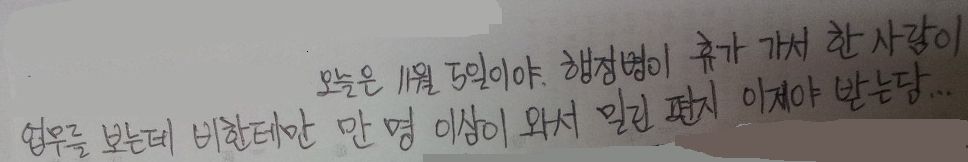 오늘은 11월 5일이야. 행정병이 휴가 가서 한 사람이
업무를 보는데 비한테만 만 명 이상이 와서 밀린 편지 이제야 받는당...